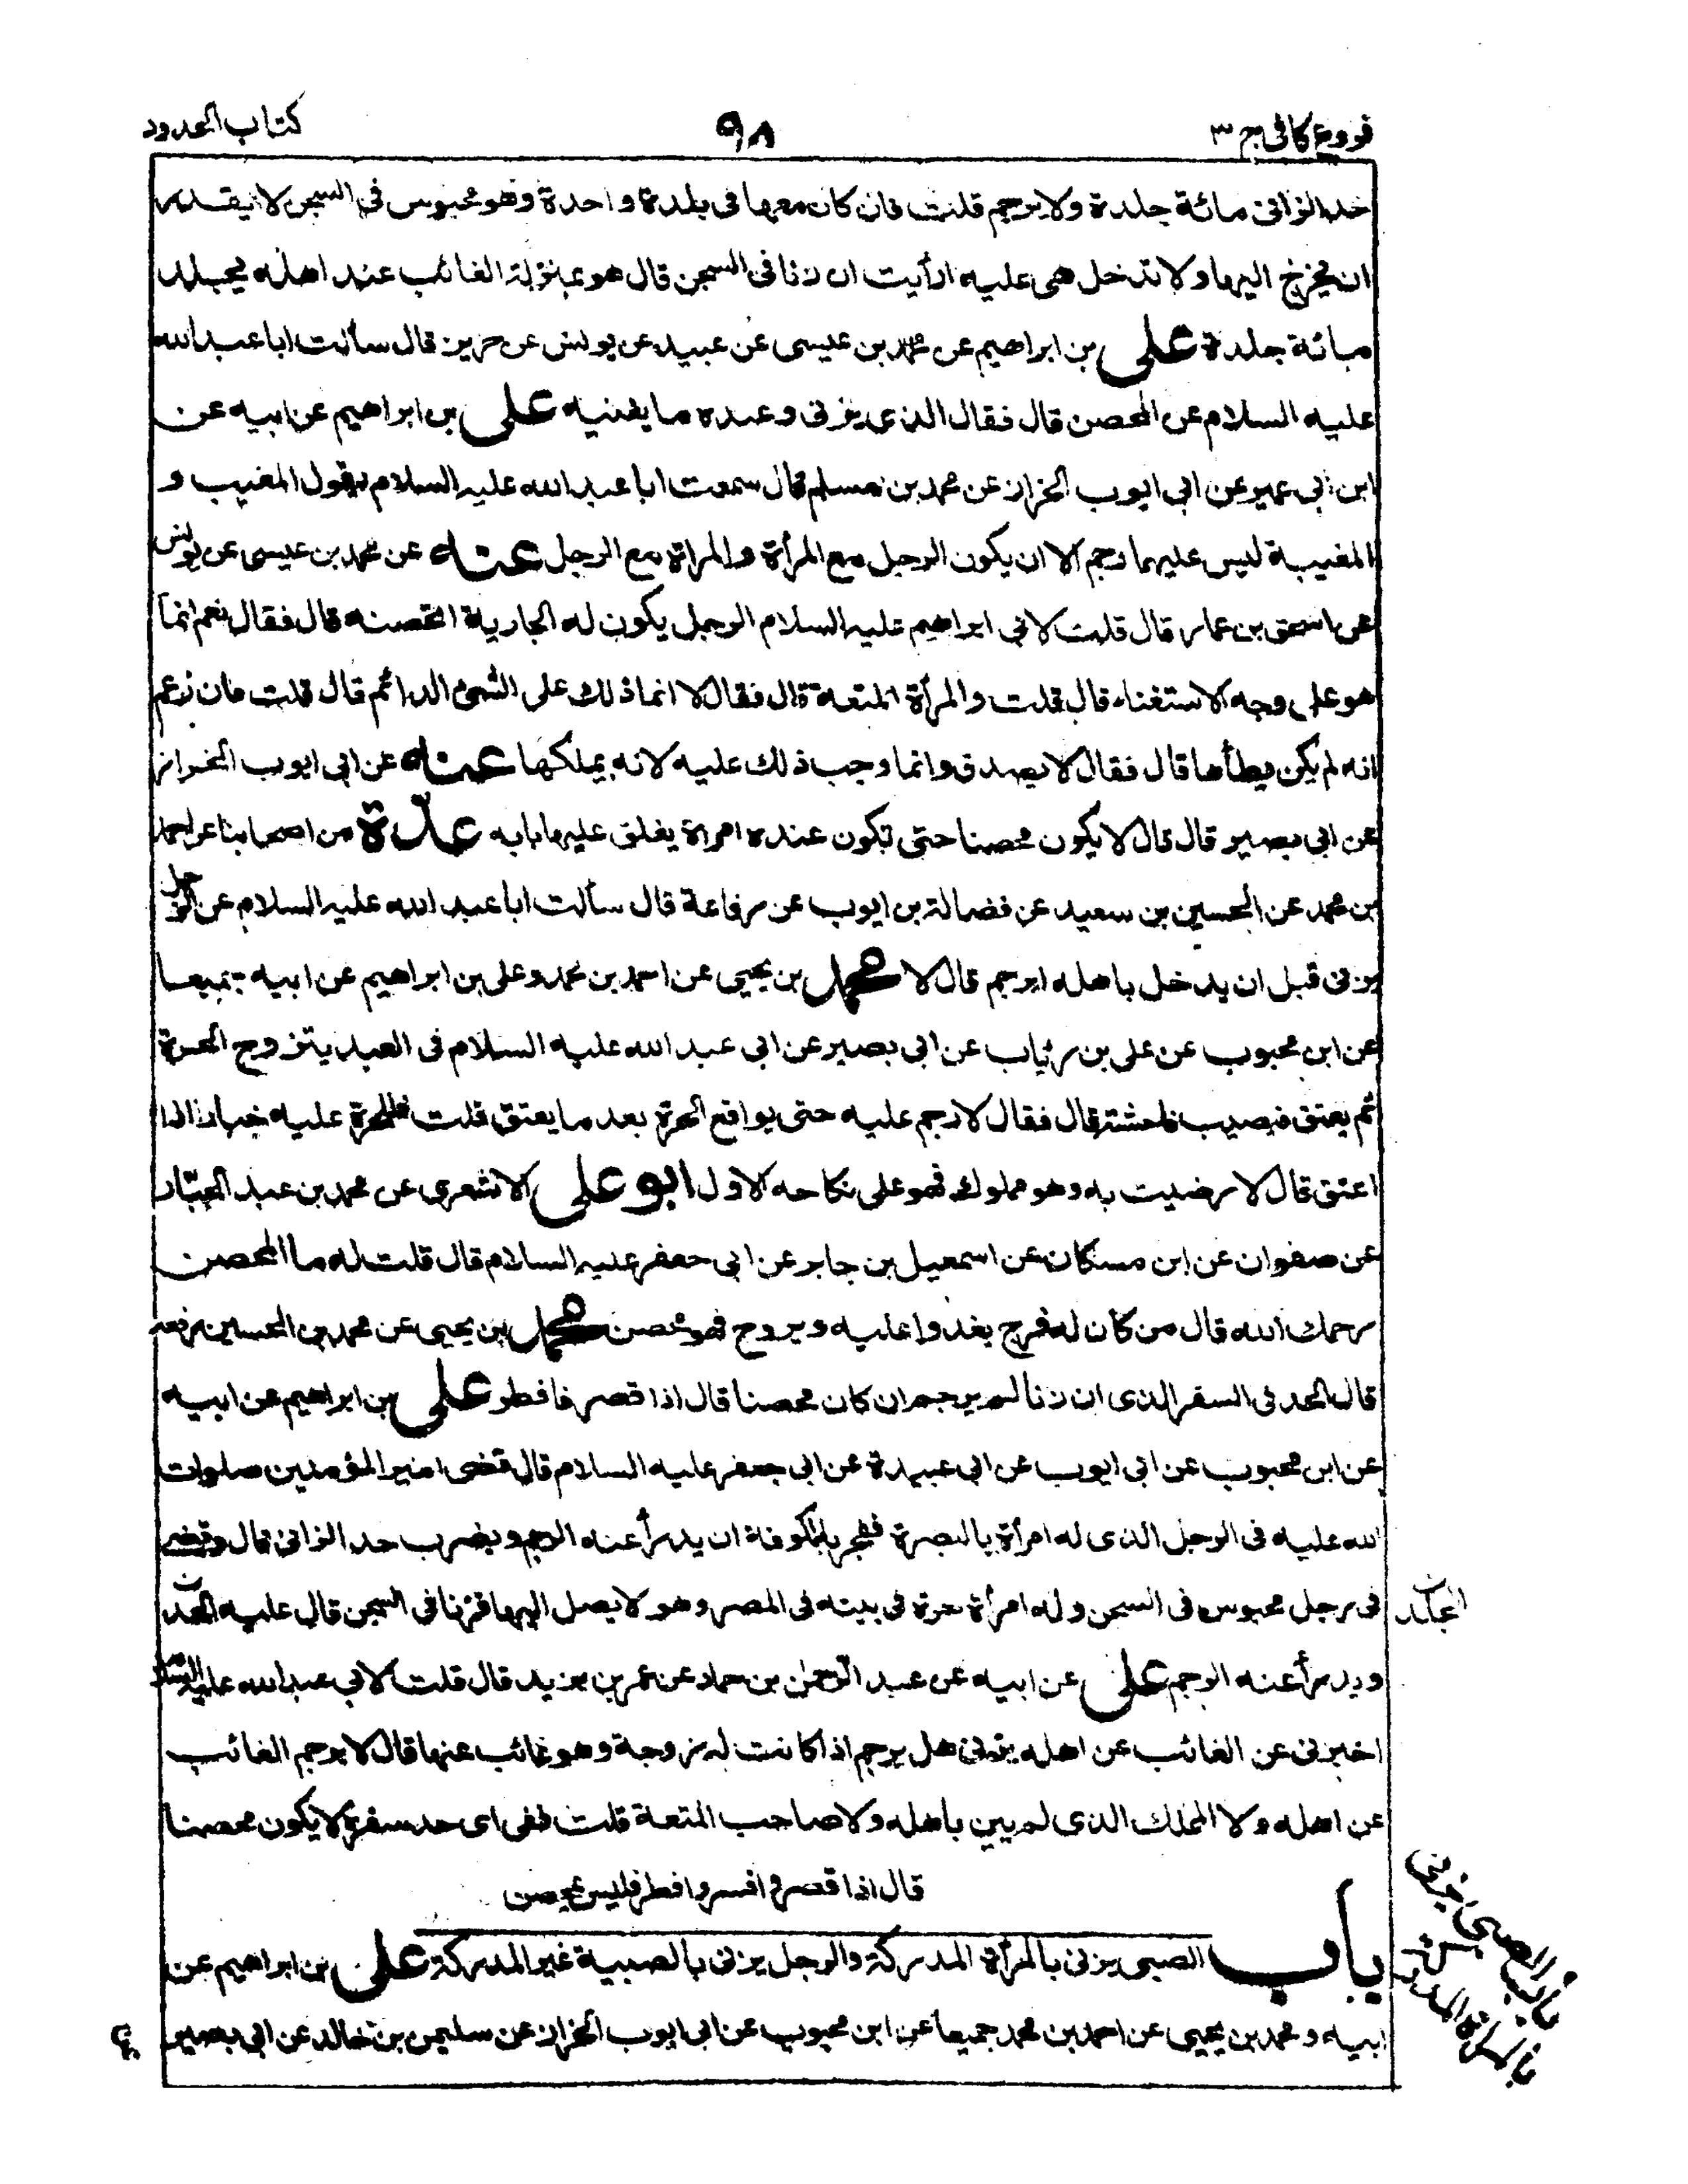 فروع كافى ج ٣
٩٨
كتاب الحدود
حد الزانى مائة جلدة ولا يرجم قلت فان كان معها فى بلدة واحدة وهو محبوس فى السجن لا يقدر
ان يخرج اليها ولا تدخل هى عليه ارأيت ان زنا فى السجن قال هو بمنزلة الغائب عند اهله يجلد
مائة جلدة على بن ابراهيم عن محمد بن عيسى عن عبيد عن يونس عن حريز قال سألت ابا عبدالله
عليه السلام عن المحصن قال فقال الذى يزنى وعنده ما يغنيه على بن ابراهيم عن ابيه عن
ابن ابى عمير عن ابى ايوب الخزاز عن محمد بن مسلم قال سمعت ابا عبد الله عليه السلام يقول المغيب و
المغيبة ليس عليهما رجم الا ان يكون الرجل مع المرأة والمراة مع الرجل عنه عن محمد بن عيسى عن يونس
عن اسحق بن عمار قال قلت لابى ابراهيم عليه السلام الرجل يكون له الجارية اتحصنه قال فقال نعم انما
هو على وجه الاستغناء قال قلت والمرأة المتعة قال فقال لا انما ذلك على الشىء الدائم قال قلت فان زعم
انه لم يكن يطأها قال فقال لا يصدق وانما وجب ذلك عليه لانه يملكها عنه عن ابى ايوب الخزاز
عن ابى بصير قال قال لا يكون محصنا حتى تكون عنده امراة يغلق عليها بابه عدة من اصحابنا عن احمد
بن محمد عن الحسين بن سعيد عن فضالة بن ايوب عن رفاعة قال سألت ابا عبد الله عليه السلام عن الرجل
يزنى قبل ان يدخل باهله ايرجم قال لا محمد بن يحيى عن احمد بن محمد وعلى بن ابراهيم عن ابيه جميعا
عن ابن محبوب عن على بن رئاب عن ابى بصير عن ابى عبد الله عليه السلام فى العبد يتزوج الحرة
ثم يعتق فيصيب فاحشة قال فقال لا رجم عليه حتى يواقع الحرة بعد ما يعتق قلت فللحرة عليه خيار اذا
اعتق قال لا رضيت به وهو مملوك فهو على نكاحه الاول ابو على الاشعرى عن محمد بن عبد الجبّار
عن صفوان عن ابن مسكان عن اسمعيل بن جابر عن ابى جعفر عليه السلام قال قلت له ما المحصن
رحمك الله قال من كان له فرج يغدوا عليه ويروح فهو محصن محمد بن يحيى عن محمد بن الحسين رفعه
قال الحد فى السفر الذى ان زنا لم يرجم ان كان محصنا قال اذا قصر فافطر على بن ابراهيم عن ابيه
عن ابن محبوب عن ابى ايوب عن ابى عبيدة عن ابى جعفر عليه السلام قال قضى امير المؤمنين صلوات
الله عليه فى الرجل الذى له امرأة بالبصرة ففجر بالكوفة ان يدرأ عنه الرجم ويضرب حد الزانى قال وقضى
فى رجل محبوس فى السجن وله امرأة حرة فى بيته فى المصر وهو لا يصل اليها فزنا فى السجن قال عليه الحد ن
الجلد ن
ويدرأ عنه الرجم على عن ابيه عن عبد الرّحمن بن حماد عن عمر بن يزيد قال قلت لابى عبدالله عليه السّلام
اخبرنى عن الغائب عن اهله يزنى هل يرجم اذا كانت له زوجة وهو غائب عنها قال لا يرجم الغائب
عن اهله ولا المملك الذى لم يبن باهله ولا صاحب المتعة قلت ففى اى حد سفره لا يكون محصنا
قال اذا قصر وافطر فليس بمحصن
باب الصبى يزنى بالمرأة المدركة والرجل يزنى بالصبية غير المدركة على بن ابراهيم عن
ابيه ومحمد بن يحيى عن احمد بن محمد جميعا عن ابن محبوب عن ابى ايوب الخزاز عن سليمن بن خالد عن ابى بصير